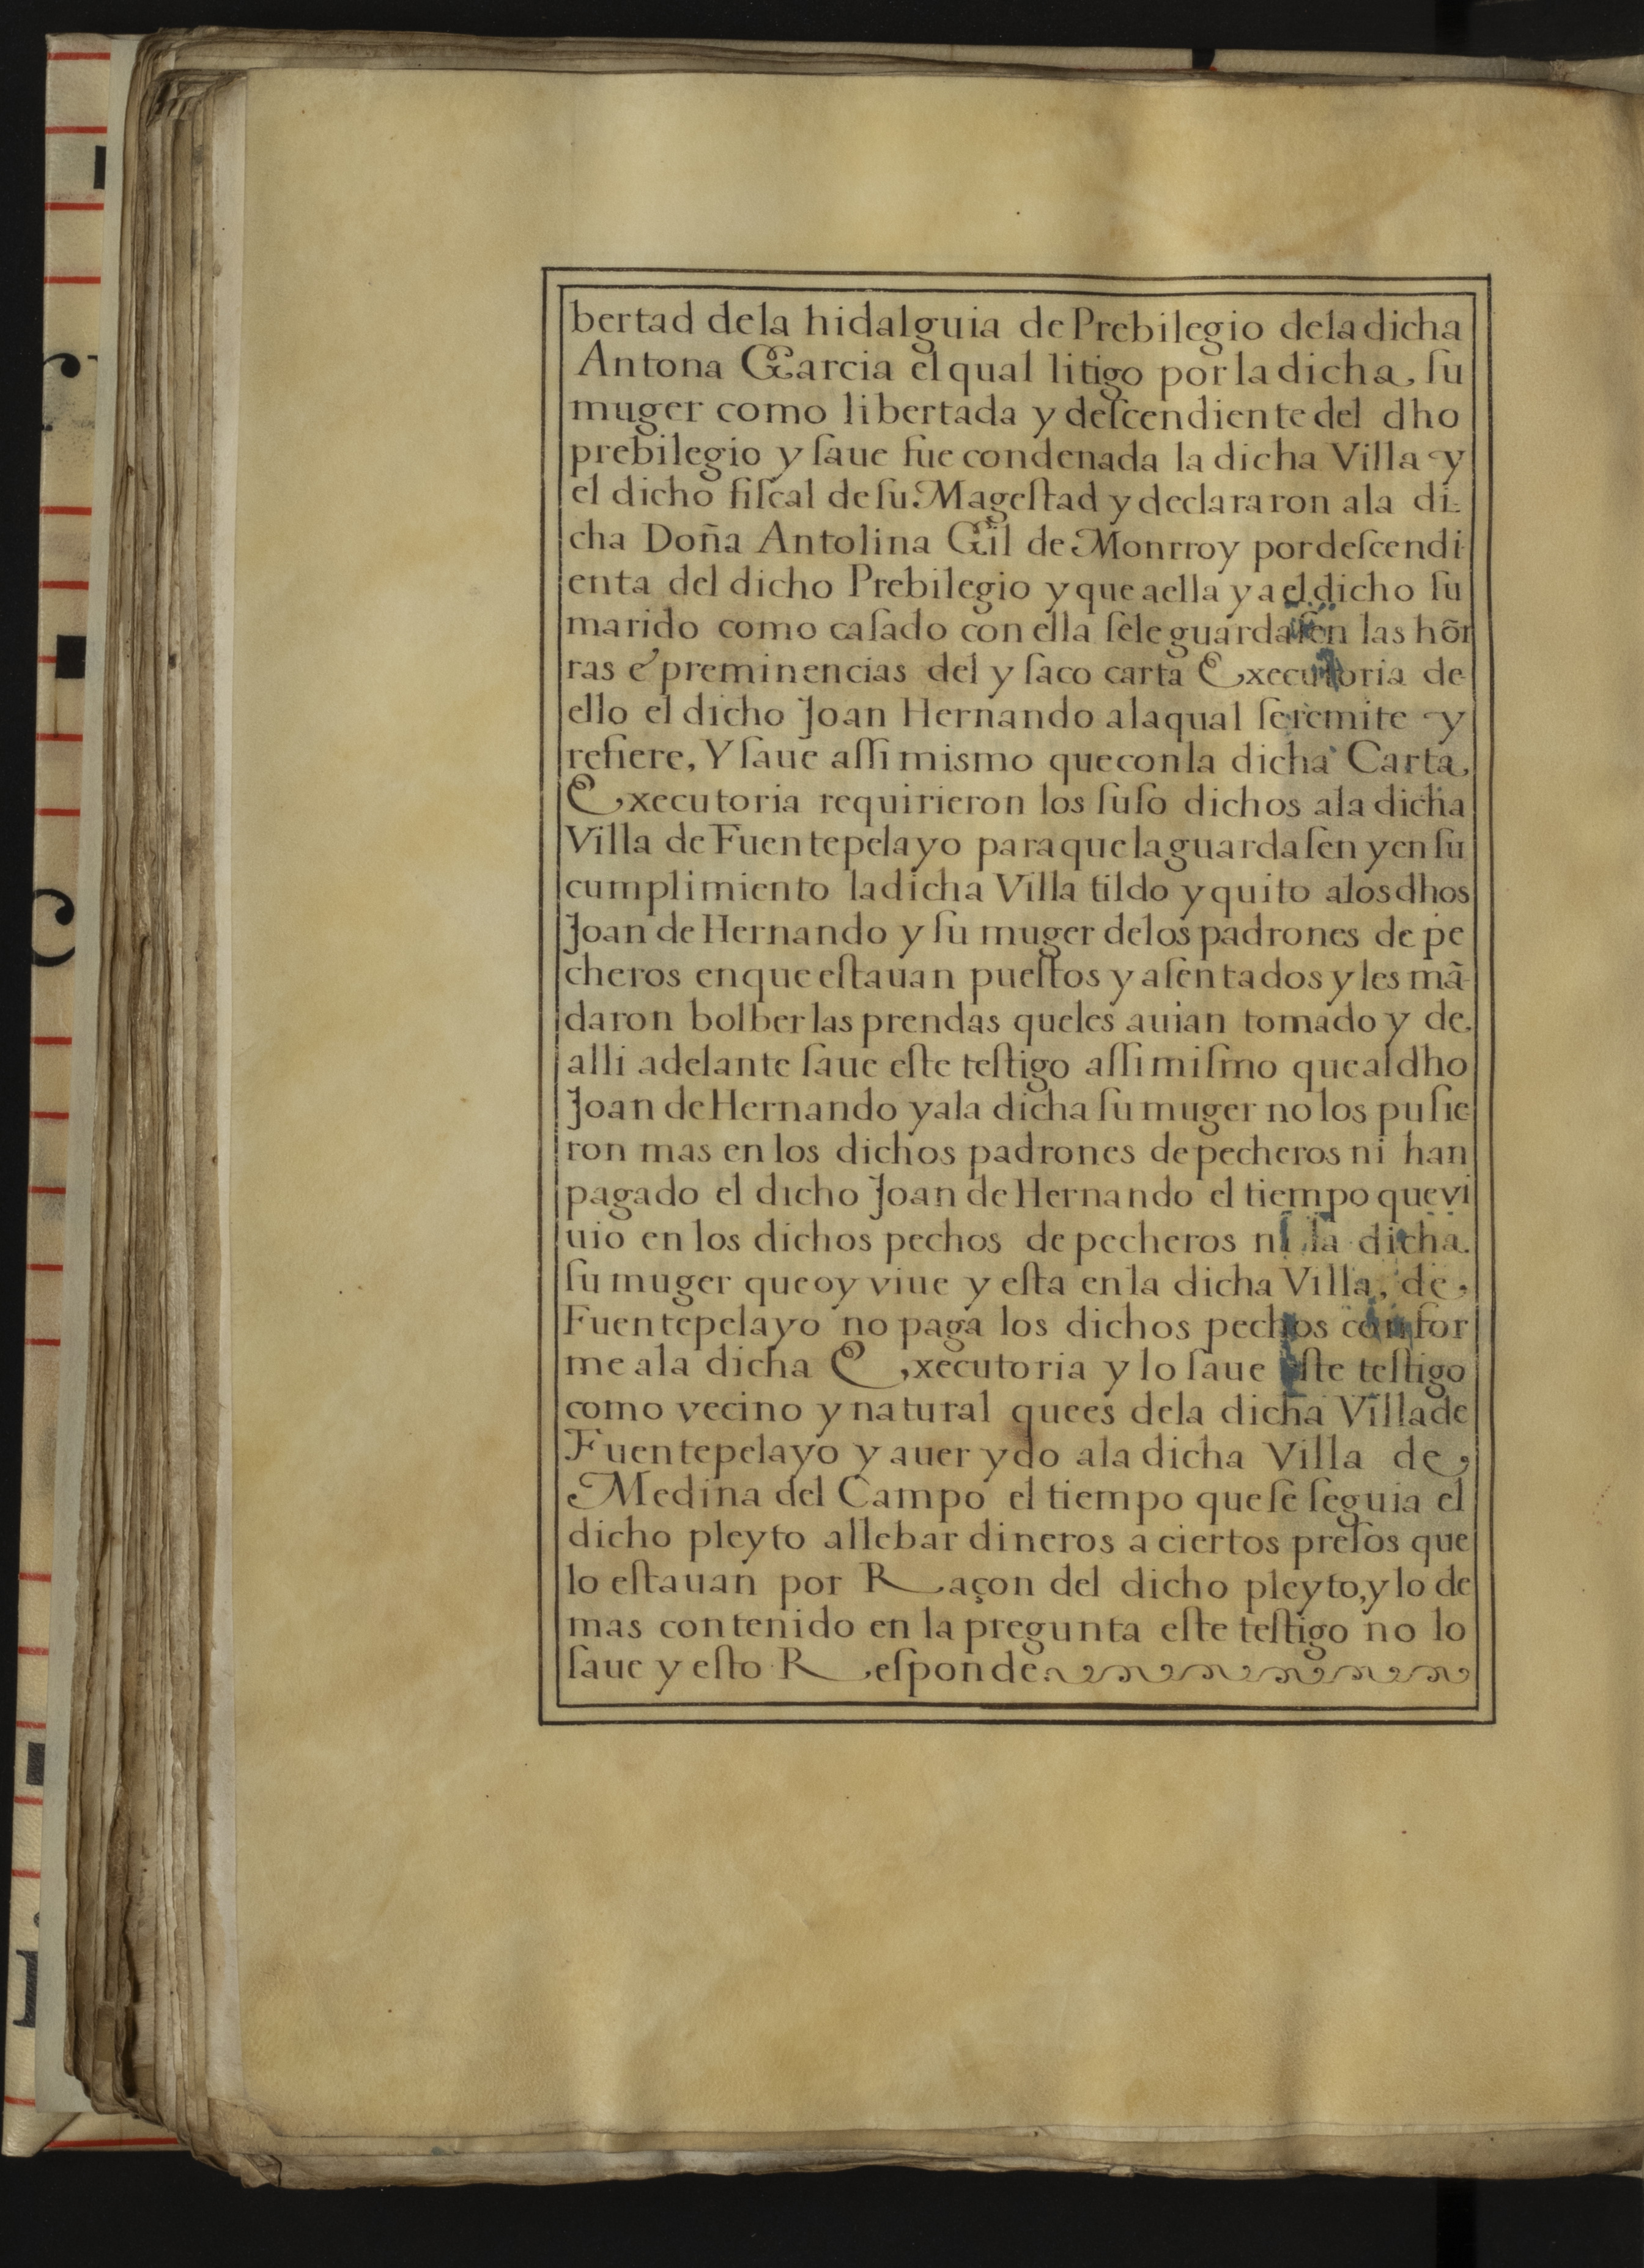 bertad dela hidalguia de Prebilegio dela dicha
Antona Garcia el qual litigo por la dicha, ſu
muger como libertada y deſcendiente del dho
prebilegio y ſaue fue condenada la dicha Villa y
el dicho fiſcal de ſu Mageſtad y declararon ala di-
cha Doña Antolina Gil de Monrroy por deſcendi
enta del dicho Prebilegio y que aella y a el dicho ſu
marido como caſado con ella ſele guardaſen las hõr
ras e preminencias del y ſaco carta Executoria de
ello el dicho Joan Hernando alaqual ſe remite y
refiere, Y ſaue aſſi mismo que conla dicha Carta,
Executoria requirieron los ſuſo dichos ala dicha
Villa de Fuentepelayo para que la guardaſen y en ſu
cumplimiento la dicha Villa tildo y quito alos dhos
Joan de Hernando y ſu muger delos padrones de pe
cheros en que eſtauan pueſtos y aſentados y les mã-
daron bolber las prendas queles auian tomado y de.
alli adelante ſaue eſte teſtigo aſſi miſmo que al dho
Joan de Hernando y ala dicha ſu muger no los puſie
ron mas en los dichos padrones de pecheros ni han
pagado el dicho Joan de Hernando el tiempo que vi
uio en los dichos pechos de pecheros ni la dicha.
ſu muger que oy viue y eſta en la dicha Villa, de,
Fuentepelayo no paga los dichos pechos confor
me ala dicha Executoria y lo ſaue eſte teſtigo
como vecino y natural que es dela dicha Villa de
Fuentepelayo y auer ydo ala dicha Villa de,
Medina del Campo el tiempo que ſe ſeguia el
dicho pleyto allebar dineros a ciertos preſos que
lo eſtauan por Raçon del dicho pleyto, y lo de
mas contenido en la pregunta eſte teſtigo no lo
ſaue y eſto Reſponde.